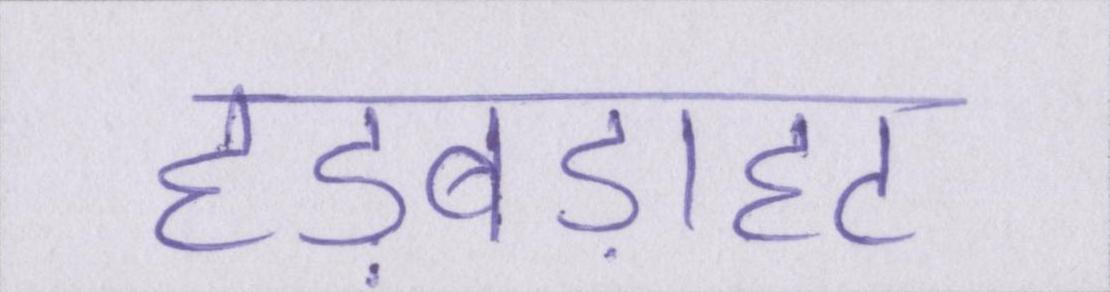 हड़बड़ाहट